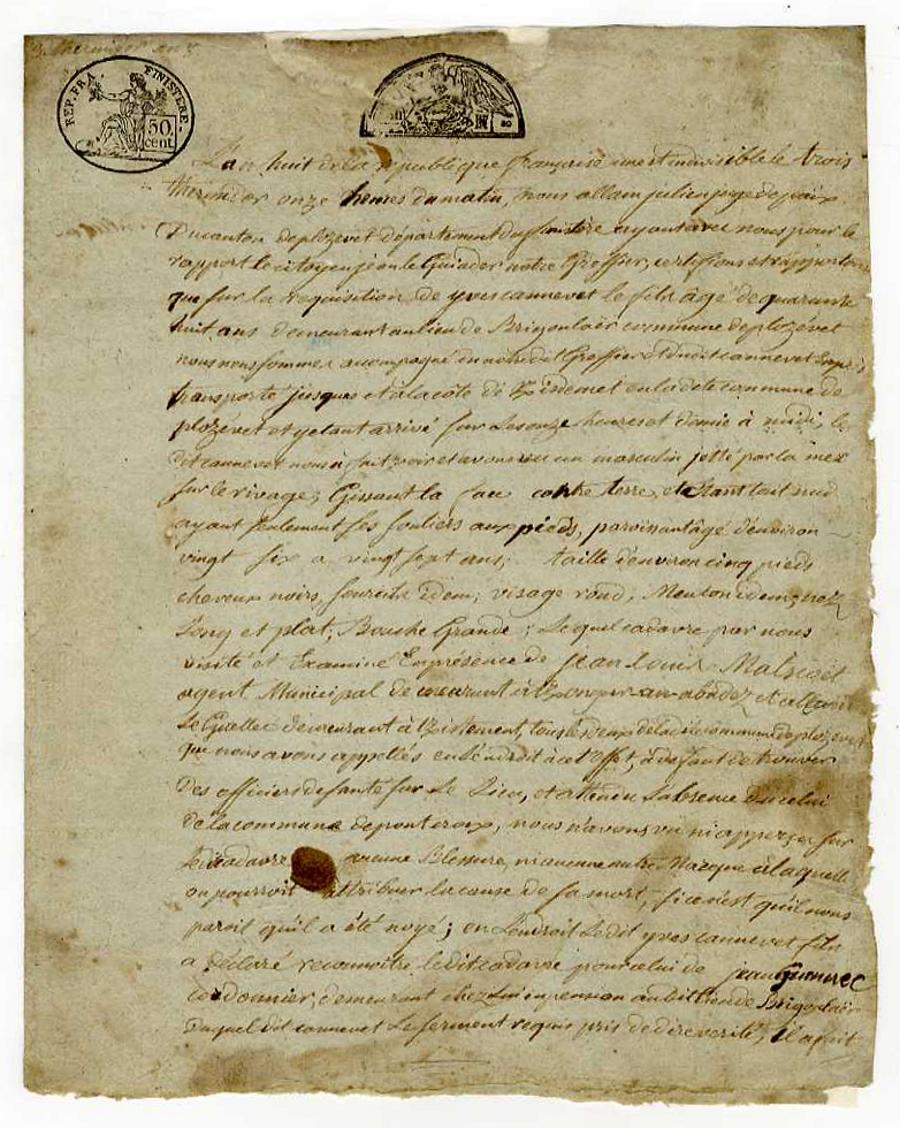 3. thermidor an 8
REP. FRA. FINISTERE.
50 cent
L'an huit de la republique françoise une et indivisible le trois
thermidor onze heures du matin, nous allain julien juge de paix
Du canton de plozevet département du finistère ayant avec nous pour le
rapport le citoyen jean le Guiader notre Greffier, certifions et rapportons
que sur la requisition de yves cannevet le fils âgé de quarante
huit ans demeurant au lieu de Brigoulaër commune de plozévet
nous nous sommes accompagné de notre dit Greffier et dudit cannevet
transporté jusques et à la côte de en la dete commune de
plozévet et y etant arrivé sur les onze heures et demie à midi, le
dit cannevet nous à fait voir et avons vu un masculin jetté par la mer
sur le rivage, Gissant la face contre terre, et etant tout nud
ayant seulement ses souliers aux pieds, paroissant âgé d'environ
vingt six a vingt sept ans; taille d'environ cinq pieds
cheveux noirs, sourcils idem; visage rond, Menton idem; nez
long et plat; Bouche Grande; Lequel cadavre par nous
visité et Examiné En présence de jean louis
agent Municipal de demeurant à et allain
Le Guellec demeurant à tous les deux de la dite commune de plozevet
que nous avons appellés en l'endroit à cet Effet, à defaut de trouver
Des officiers de santé sur Le Lieu, et attendu L'absence de celui
de la commune de pontcroix, nous n'avons vu ni apperçu sur
Le dit cadavre aucune Blessure, ni aucune autre Marque à laquelle
on pourroit attribuer la cause de sa mort, si ce n'est qu'il nous
paroit qu'il a été noyé; en L'endroit Ledit yves cannevet fils
a déclaré reconnoitre le dit cadavre pour celui de jean
cordonnier, demeurant chez lui en pension au dit lieu de Brigoulaër
Duquel dit cannevet Le serment requis pris de dire verité, il a fait